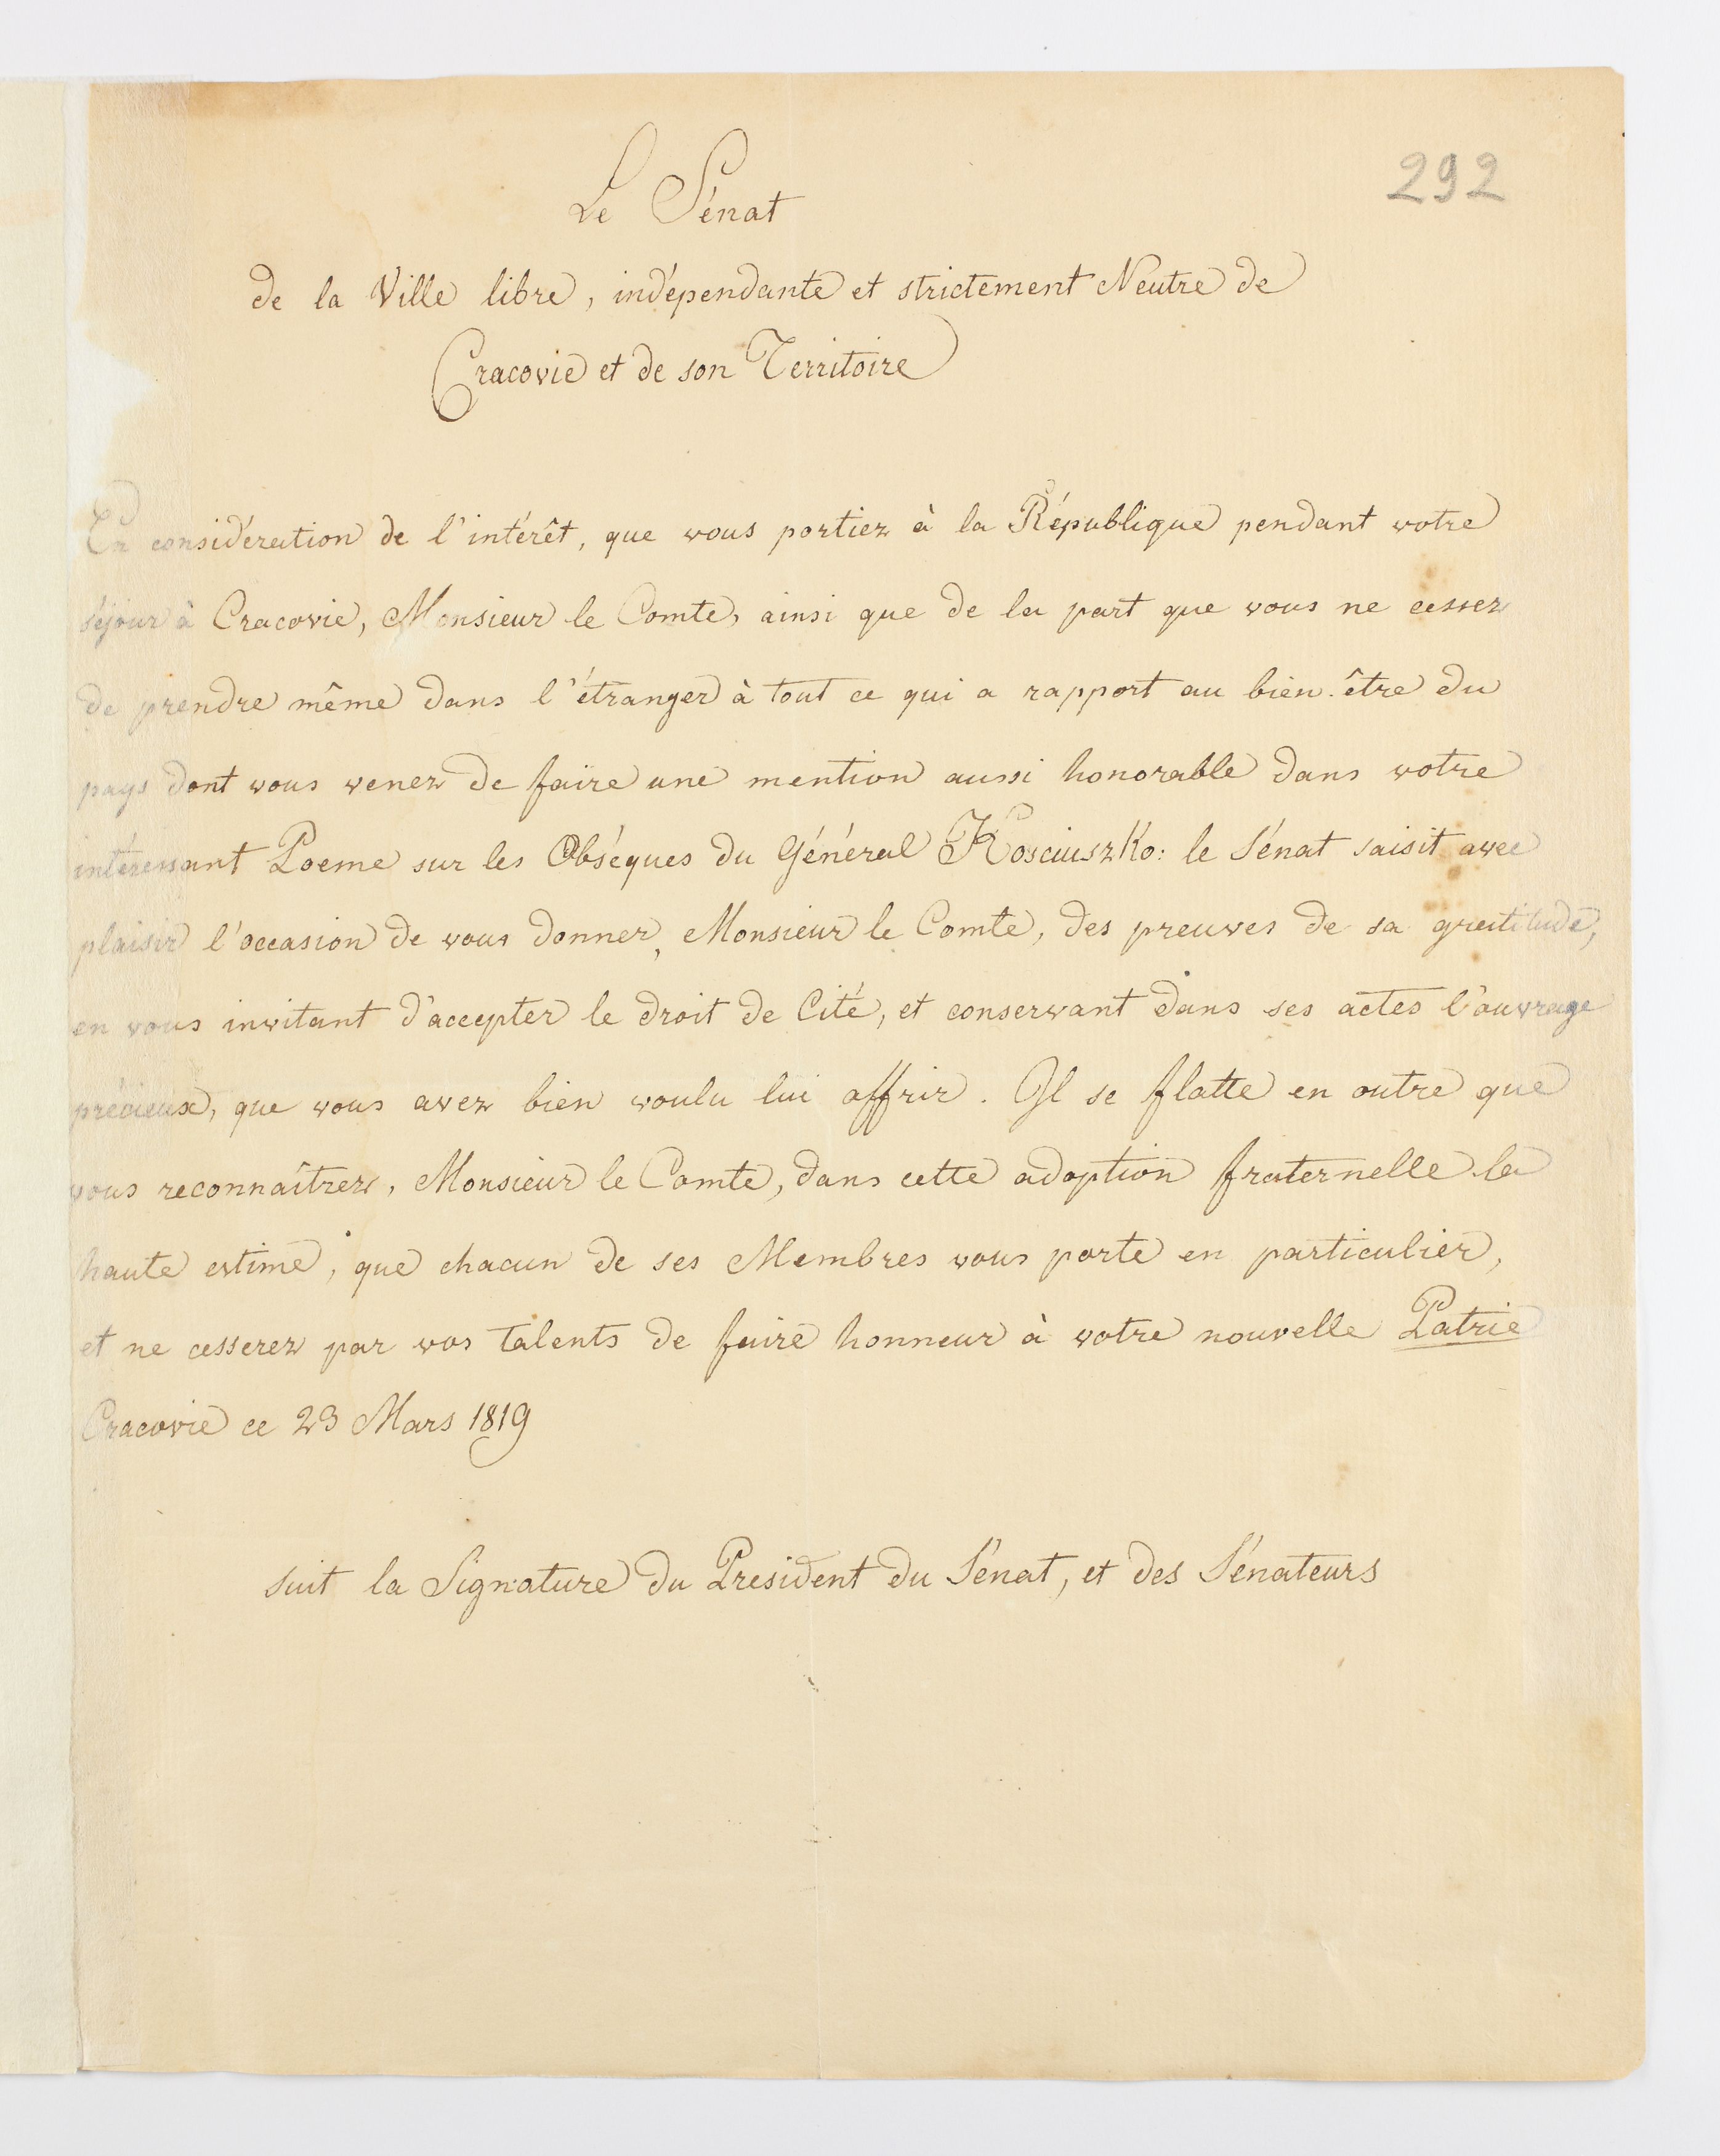 292
Le Sénat
de la Ville libre, indépendante et strictement Neutre de
Cracovie et de son Territoire
En considération de l'intérêt, que vous portiez à la République pendant votre
séjour à Cracovie, Monsieur le Comte, ainsi que de la part que vous ne cessez
de prendre même dans l'étranger à tout ce qui a rapport au bien-être du
pays dont vous venez de faire une mention aussi honorable dans votre
intéressant Poeme sur les Obséques du Général Kosciuszko: le Sénat saisit avec
plaisir l'occasion de vous donner, Monsieur le Comte, des preuves de sa gratitude,
en vous invitant d'accepter le droit de Cité, et conservant dans ses actes l'ouvrage
précieux, que vous avez bien voulu lui offrir. Il se flatte en outre que
vous reconnaîtrez, Monsieur le Comte, dans cette adoption fraternelle la
haute estime, que chacun de ses Membres vous porte en particulier,
et ne cesserez par vos talents de faire honneur à votre nouvelle Patrie
Cracovie ce 23 Mars 1819
suit la Signature du President du Sénat, et des Sénateurs